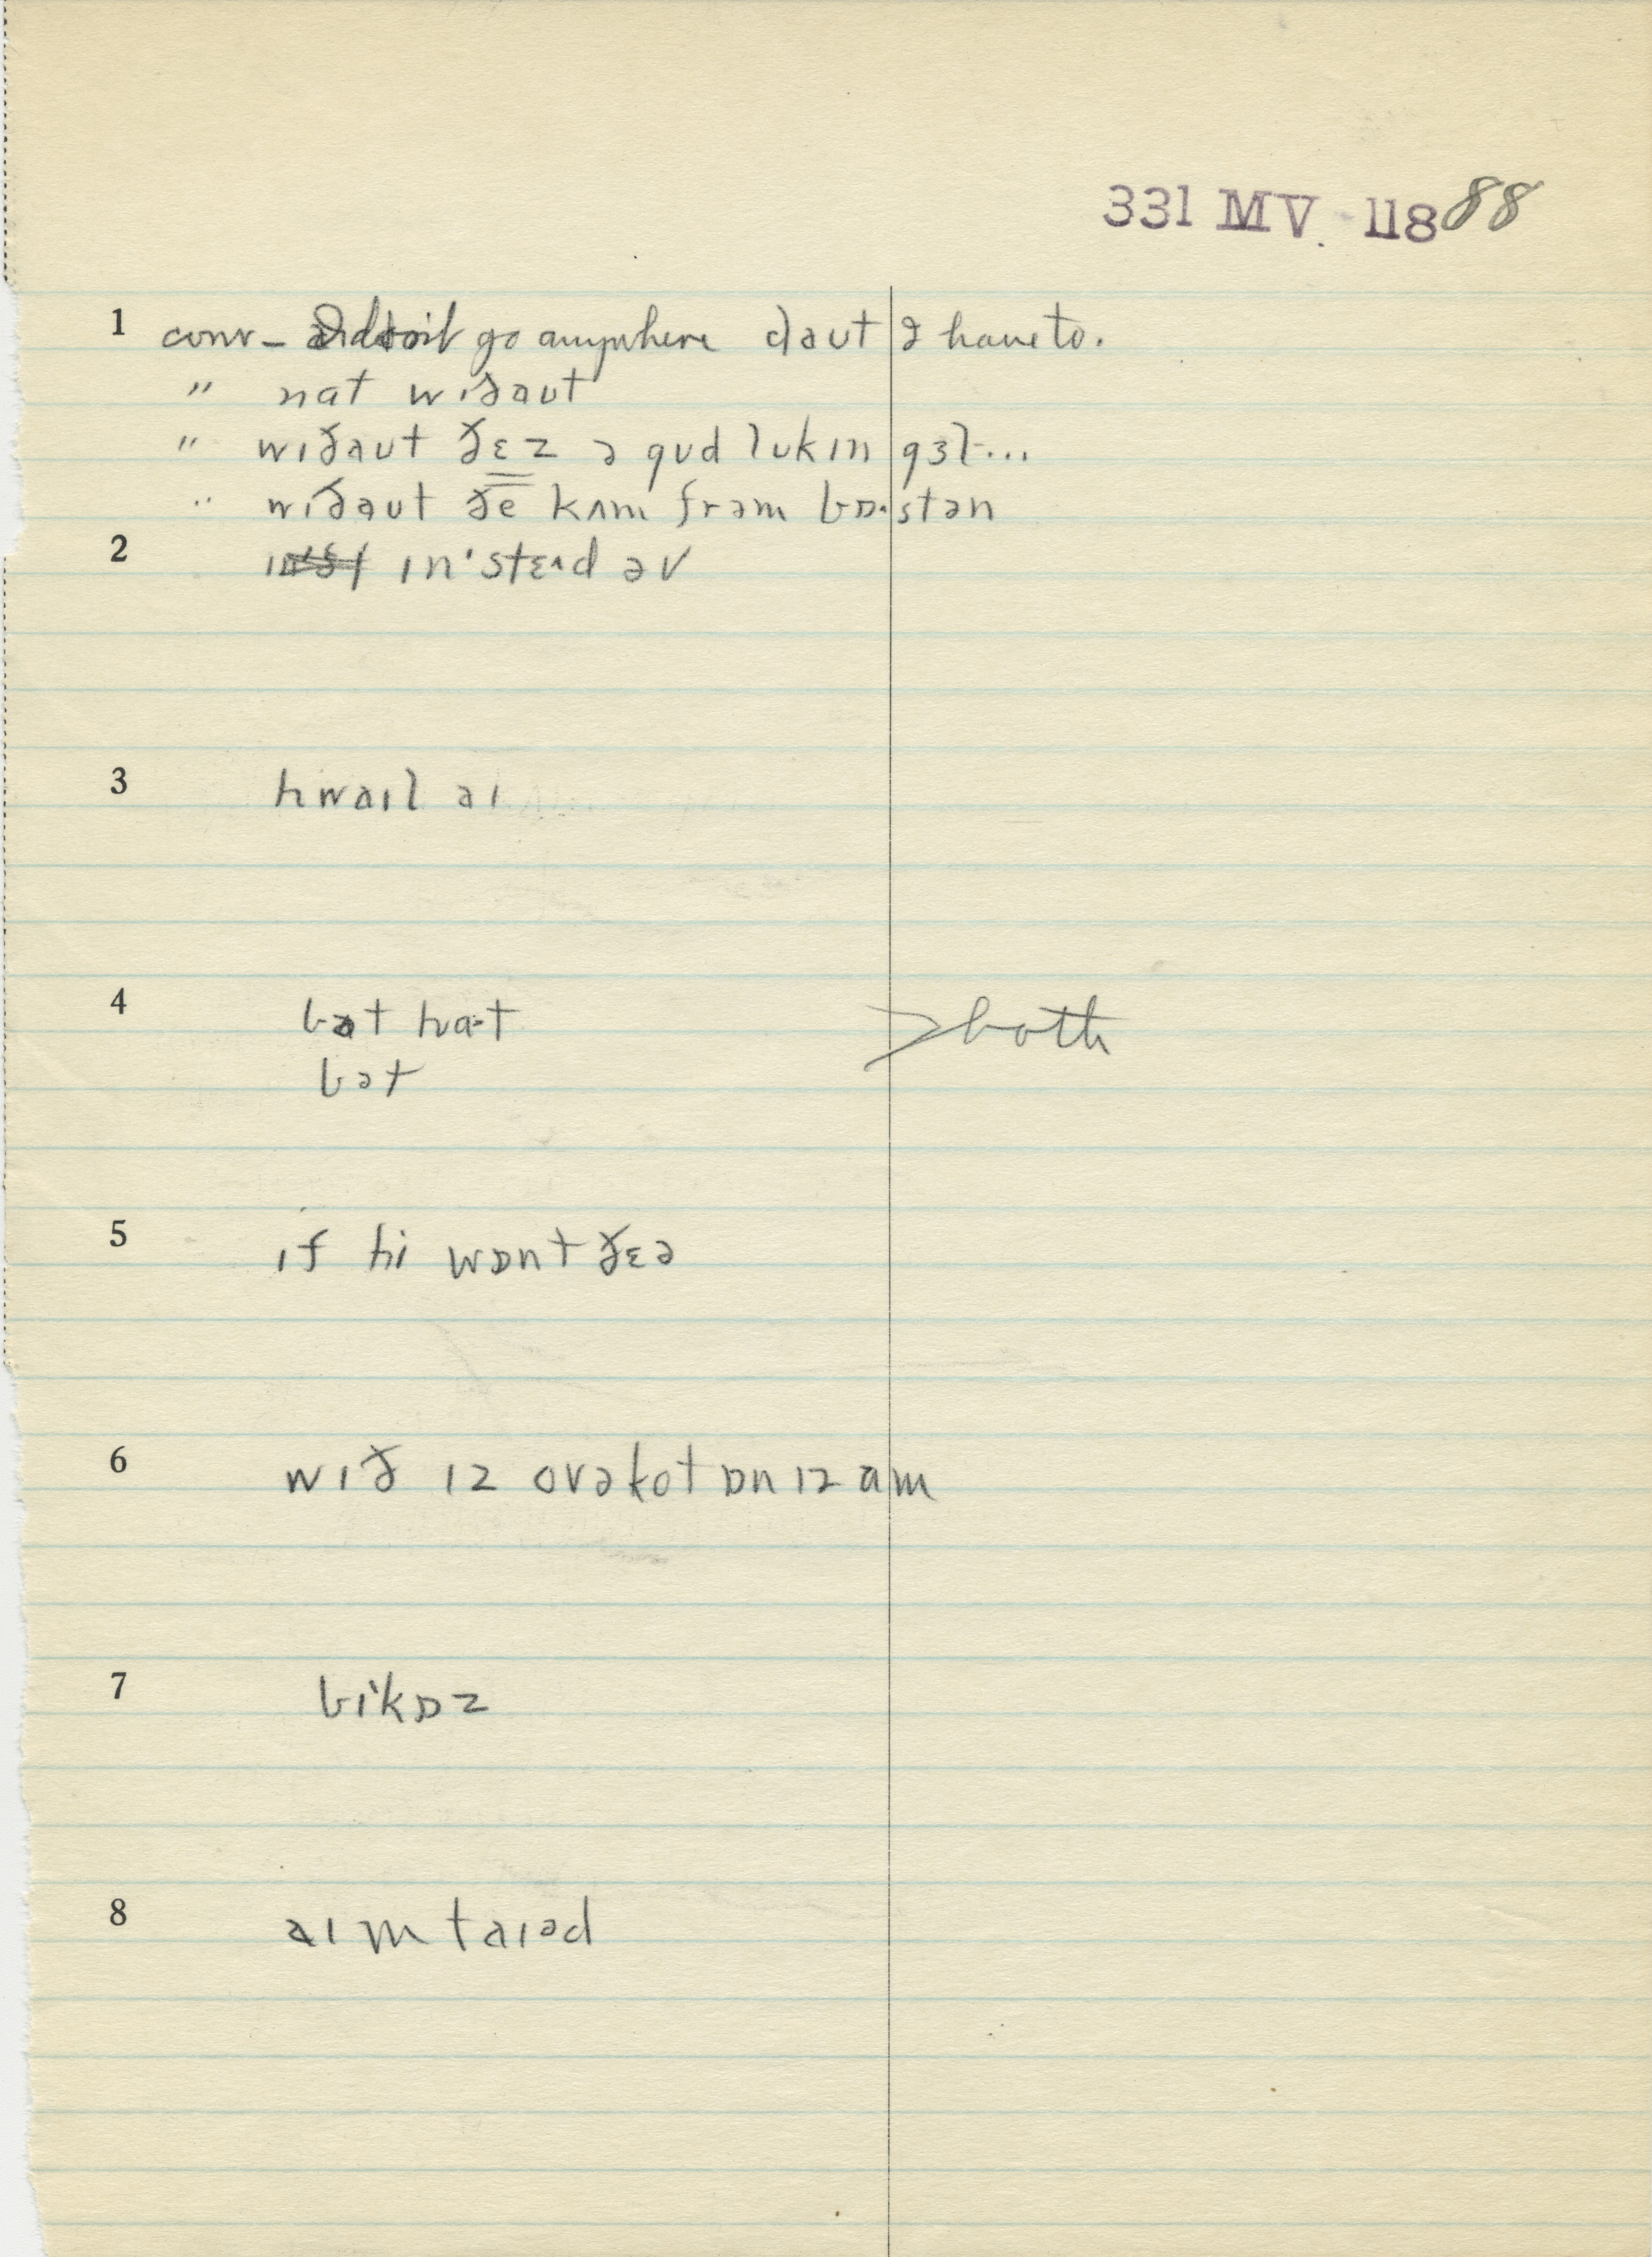 331 MV. 118 88
1 conv – I don't go anywhere ðaut I have to.
" nat wiðaut
" wɪðaut ðɛz ə gud lukɪn gɜl...
" wɪðaut ðe kʌm frəm bɒ·stən
2 ɪn'stɛʌd əv
3 hwaɪl aɪ
4 bət ha·t > both
bət
5 ɪf hi wɒnt ðɛə
6 wɪð ɪz ovəkot ɒn ɪz am
7 bi'kɒz
8 aɪm taɪəd